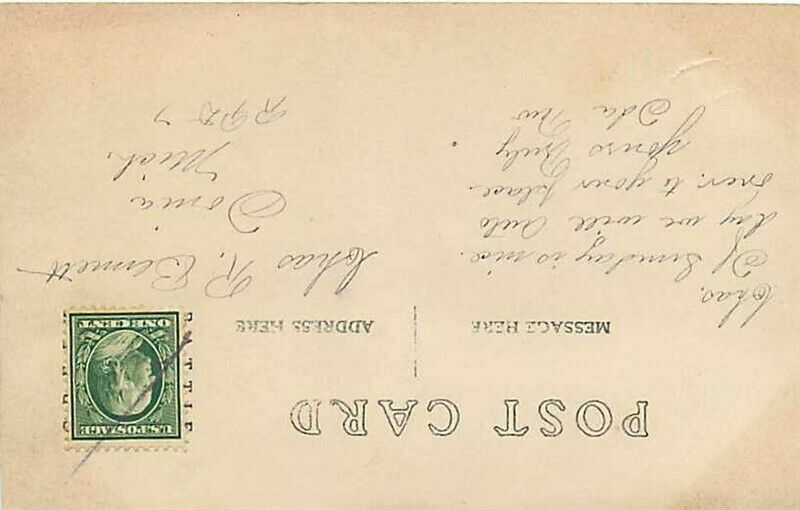 POST CARD
MESSAGE HERE
Chas.
If Sunday is nice
day we will Auto
over to your place.
Yours Truly
Ida
ADDRESS HERE
Chas R. Bennett
Ionia
Mich.
RFD 7
U.S. POSTAGE
ONE CENT